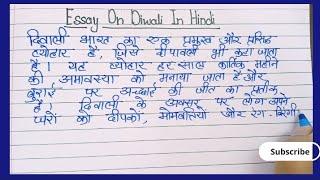 Essay On Diwali In Hindi
दिवाली भारत का एक प्रमुख और प्रसिद्ध
त्योहार है, जिसे दीपावली भी कहा जाता
है। यह त्योहार हर साल कार्तिक महीने
की अमावस्या को मनाया जाता है और
बुराई पर अच्छाई की जीत का प्रतीक
है। दिवाली के अवसर पर लोग अपने
घरों को दीपकों, मोमबत्तियों और रंग-बिरंगी
Subscribe